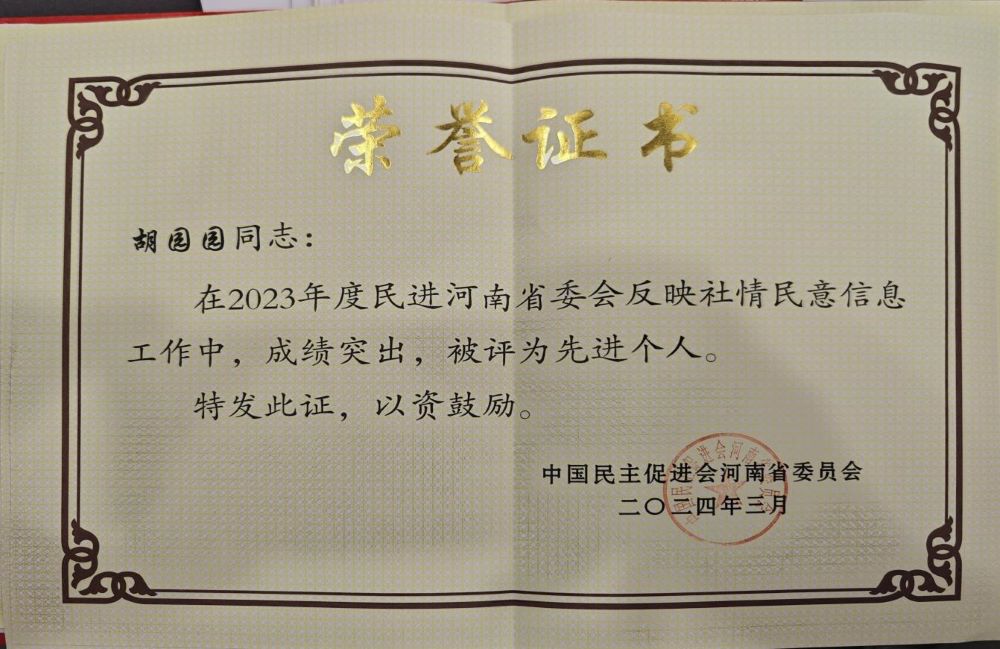 荣誉证书
胡园园同志：
在2023年度民进河南省委会反映社情民意信息
工作中，成绩突出，被评为先进个人。
特发此证，以资鼓励。
中国民主促进会河南省委员会
二〇二四年三月
中国民主促进会河南省委员会